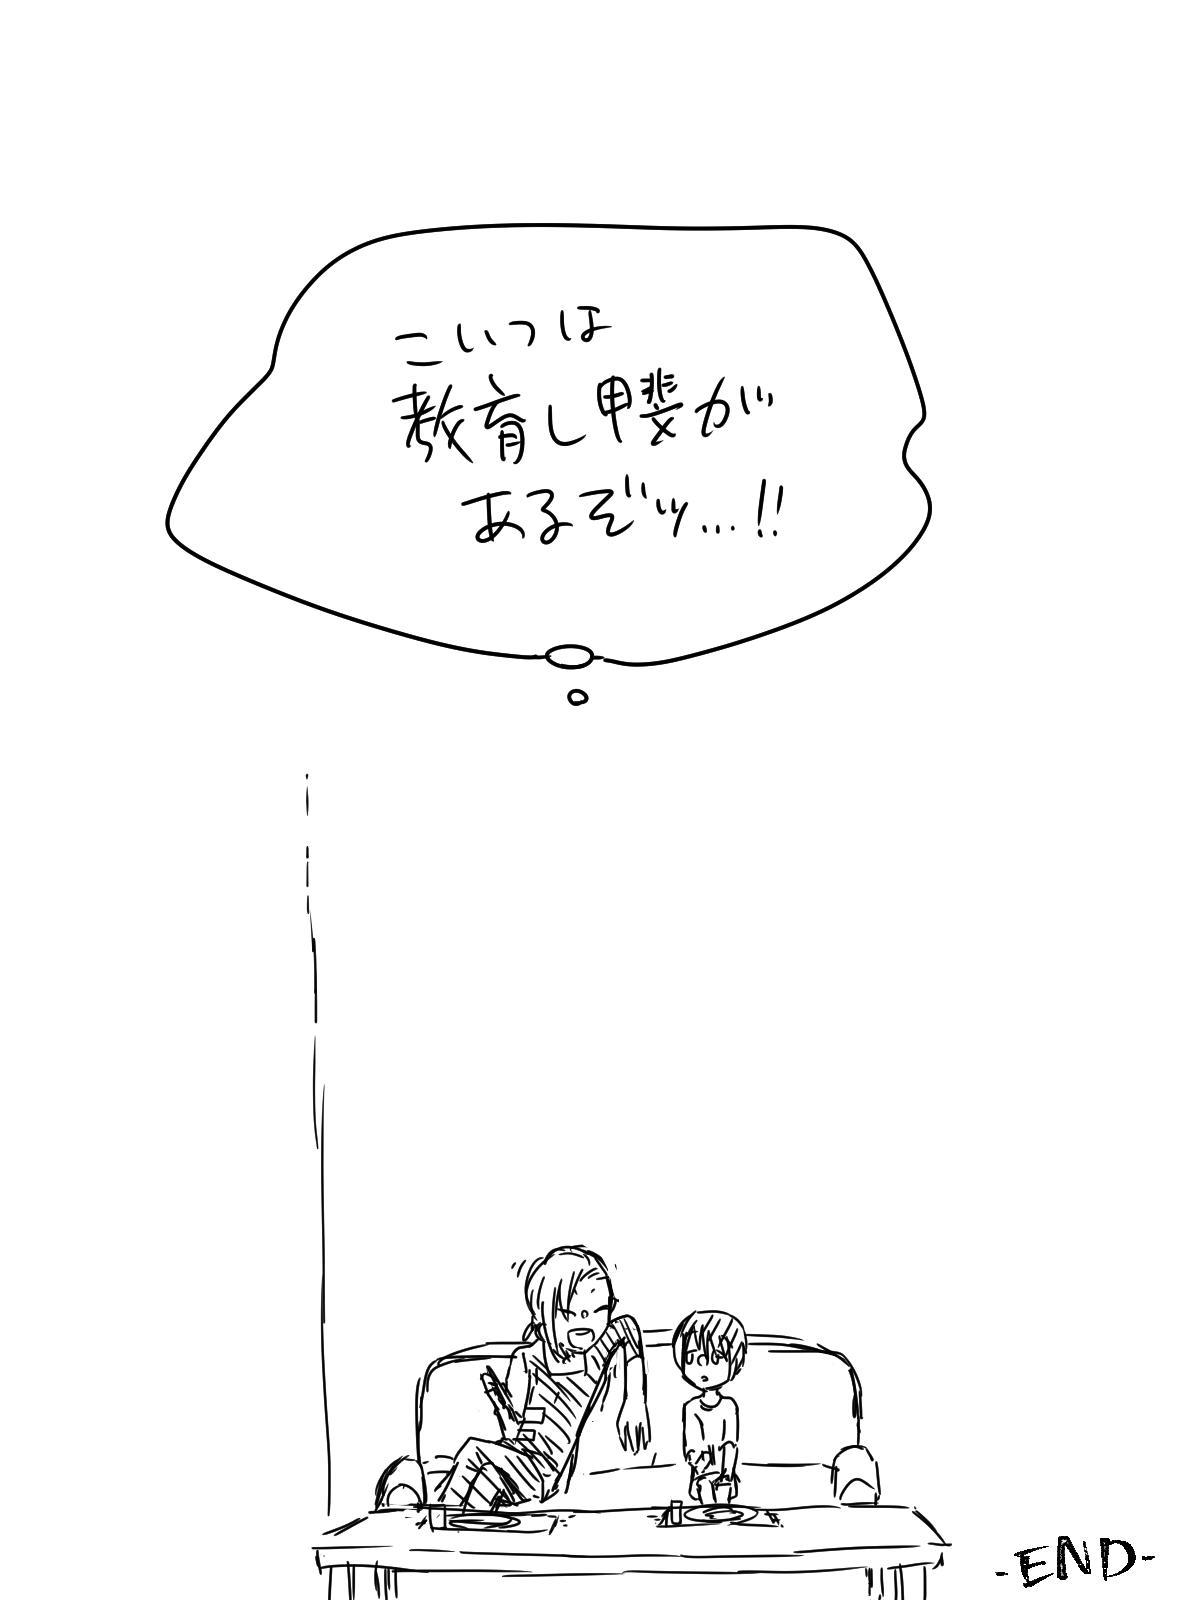 こいつは
教育し甲斐が
あるぞッ…!!
-END-